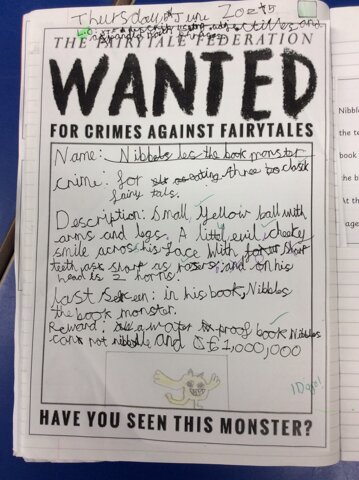 Thursday June
THE FAIRYTALE FEDERATION
WANTED
FOR CRIMES AGAINST FAIRYTALES
Name: Nibbles the book monster
crime: for eating three clasik
fairy tals.
Description: Small Yellow ball with
arms and legs. A little evil cheeky
smile across his face with
teeth as sharp as and on his
head is 2 horns.
Last Seen: in his book, Nibbles
the book monster.
Reward: a water proof book Nibbles
can not nibble and £1,000,000
HAVE YOU SEEN THIS MONSTER?
Nibbl
the te
book
the b
At th
age